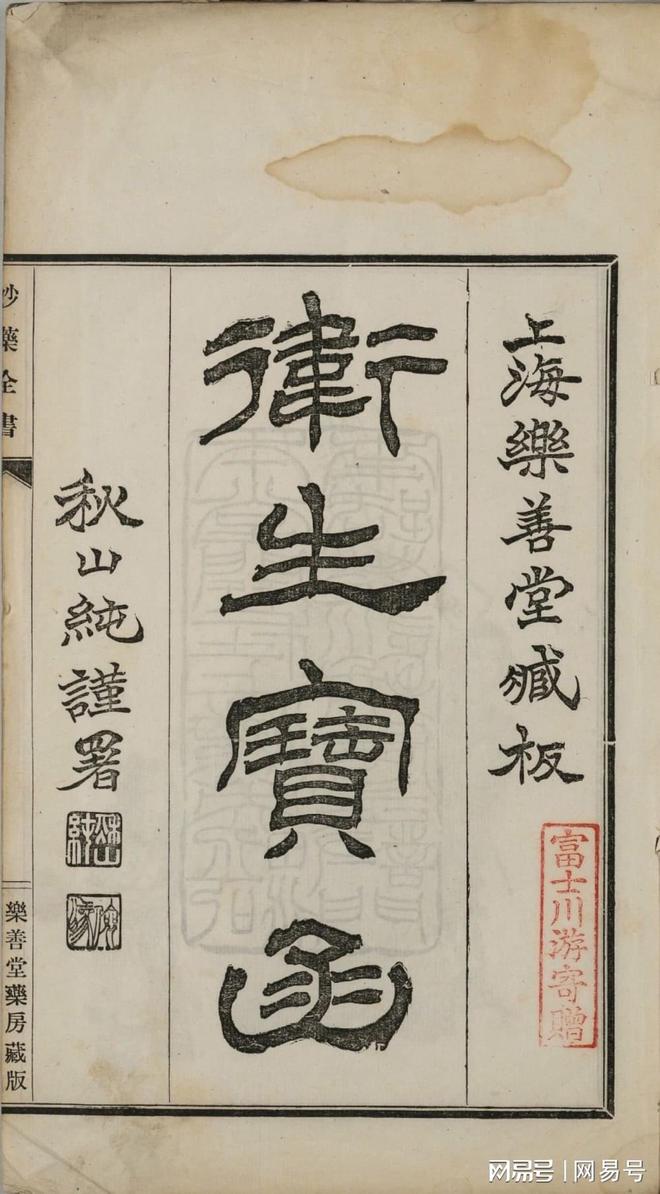 上海樂善堂臧板
富士川游寄贈
衛生寶函
秋山純謹署
藥全書
樂善堂藥房藏版
網易号 | 网易号